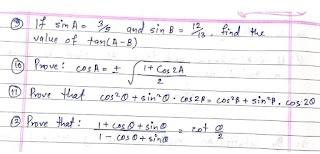 ⑨ If sin A = 3/5 and sin B = 12/13. find the
value of tan(A-B)
⑩ Prove: cos A = ± √(1 + Cos 2A / 2)
⑪ Prove that cos²θ + sin²θ · cos 2β = cos²β + sin²β · cos 2θ
⑫ Prove that: 1 + cos θ + sin θ / 1 - cos θ + sin θ = cot θ/2